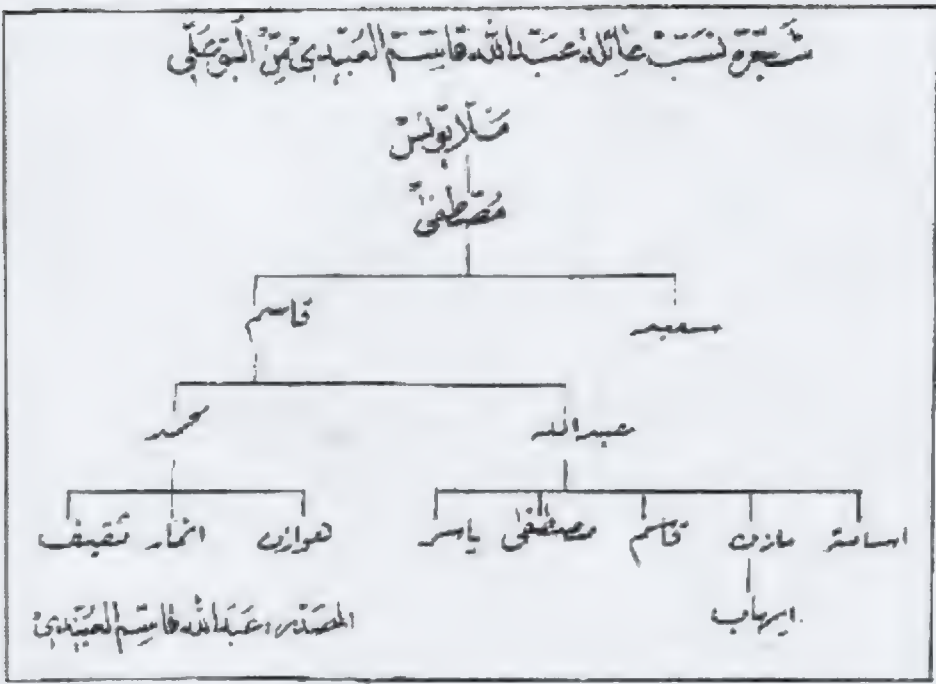 شجرة نسب عائلة عبدالله قاسم العبيدي من البو علي
ملا يونس
مصطفى
سعيد
قاسم
عبدالله
محمد
اسامة
مازن
قاسم
مصطفى
ياسر
هوازن
انمار
ثقيف
ايهاب
المصدر: عبدالله قاسم العبيدي